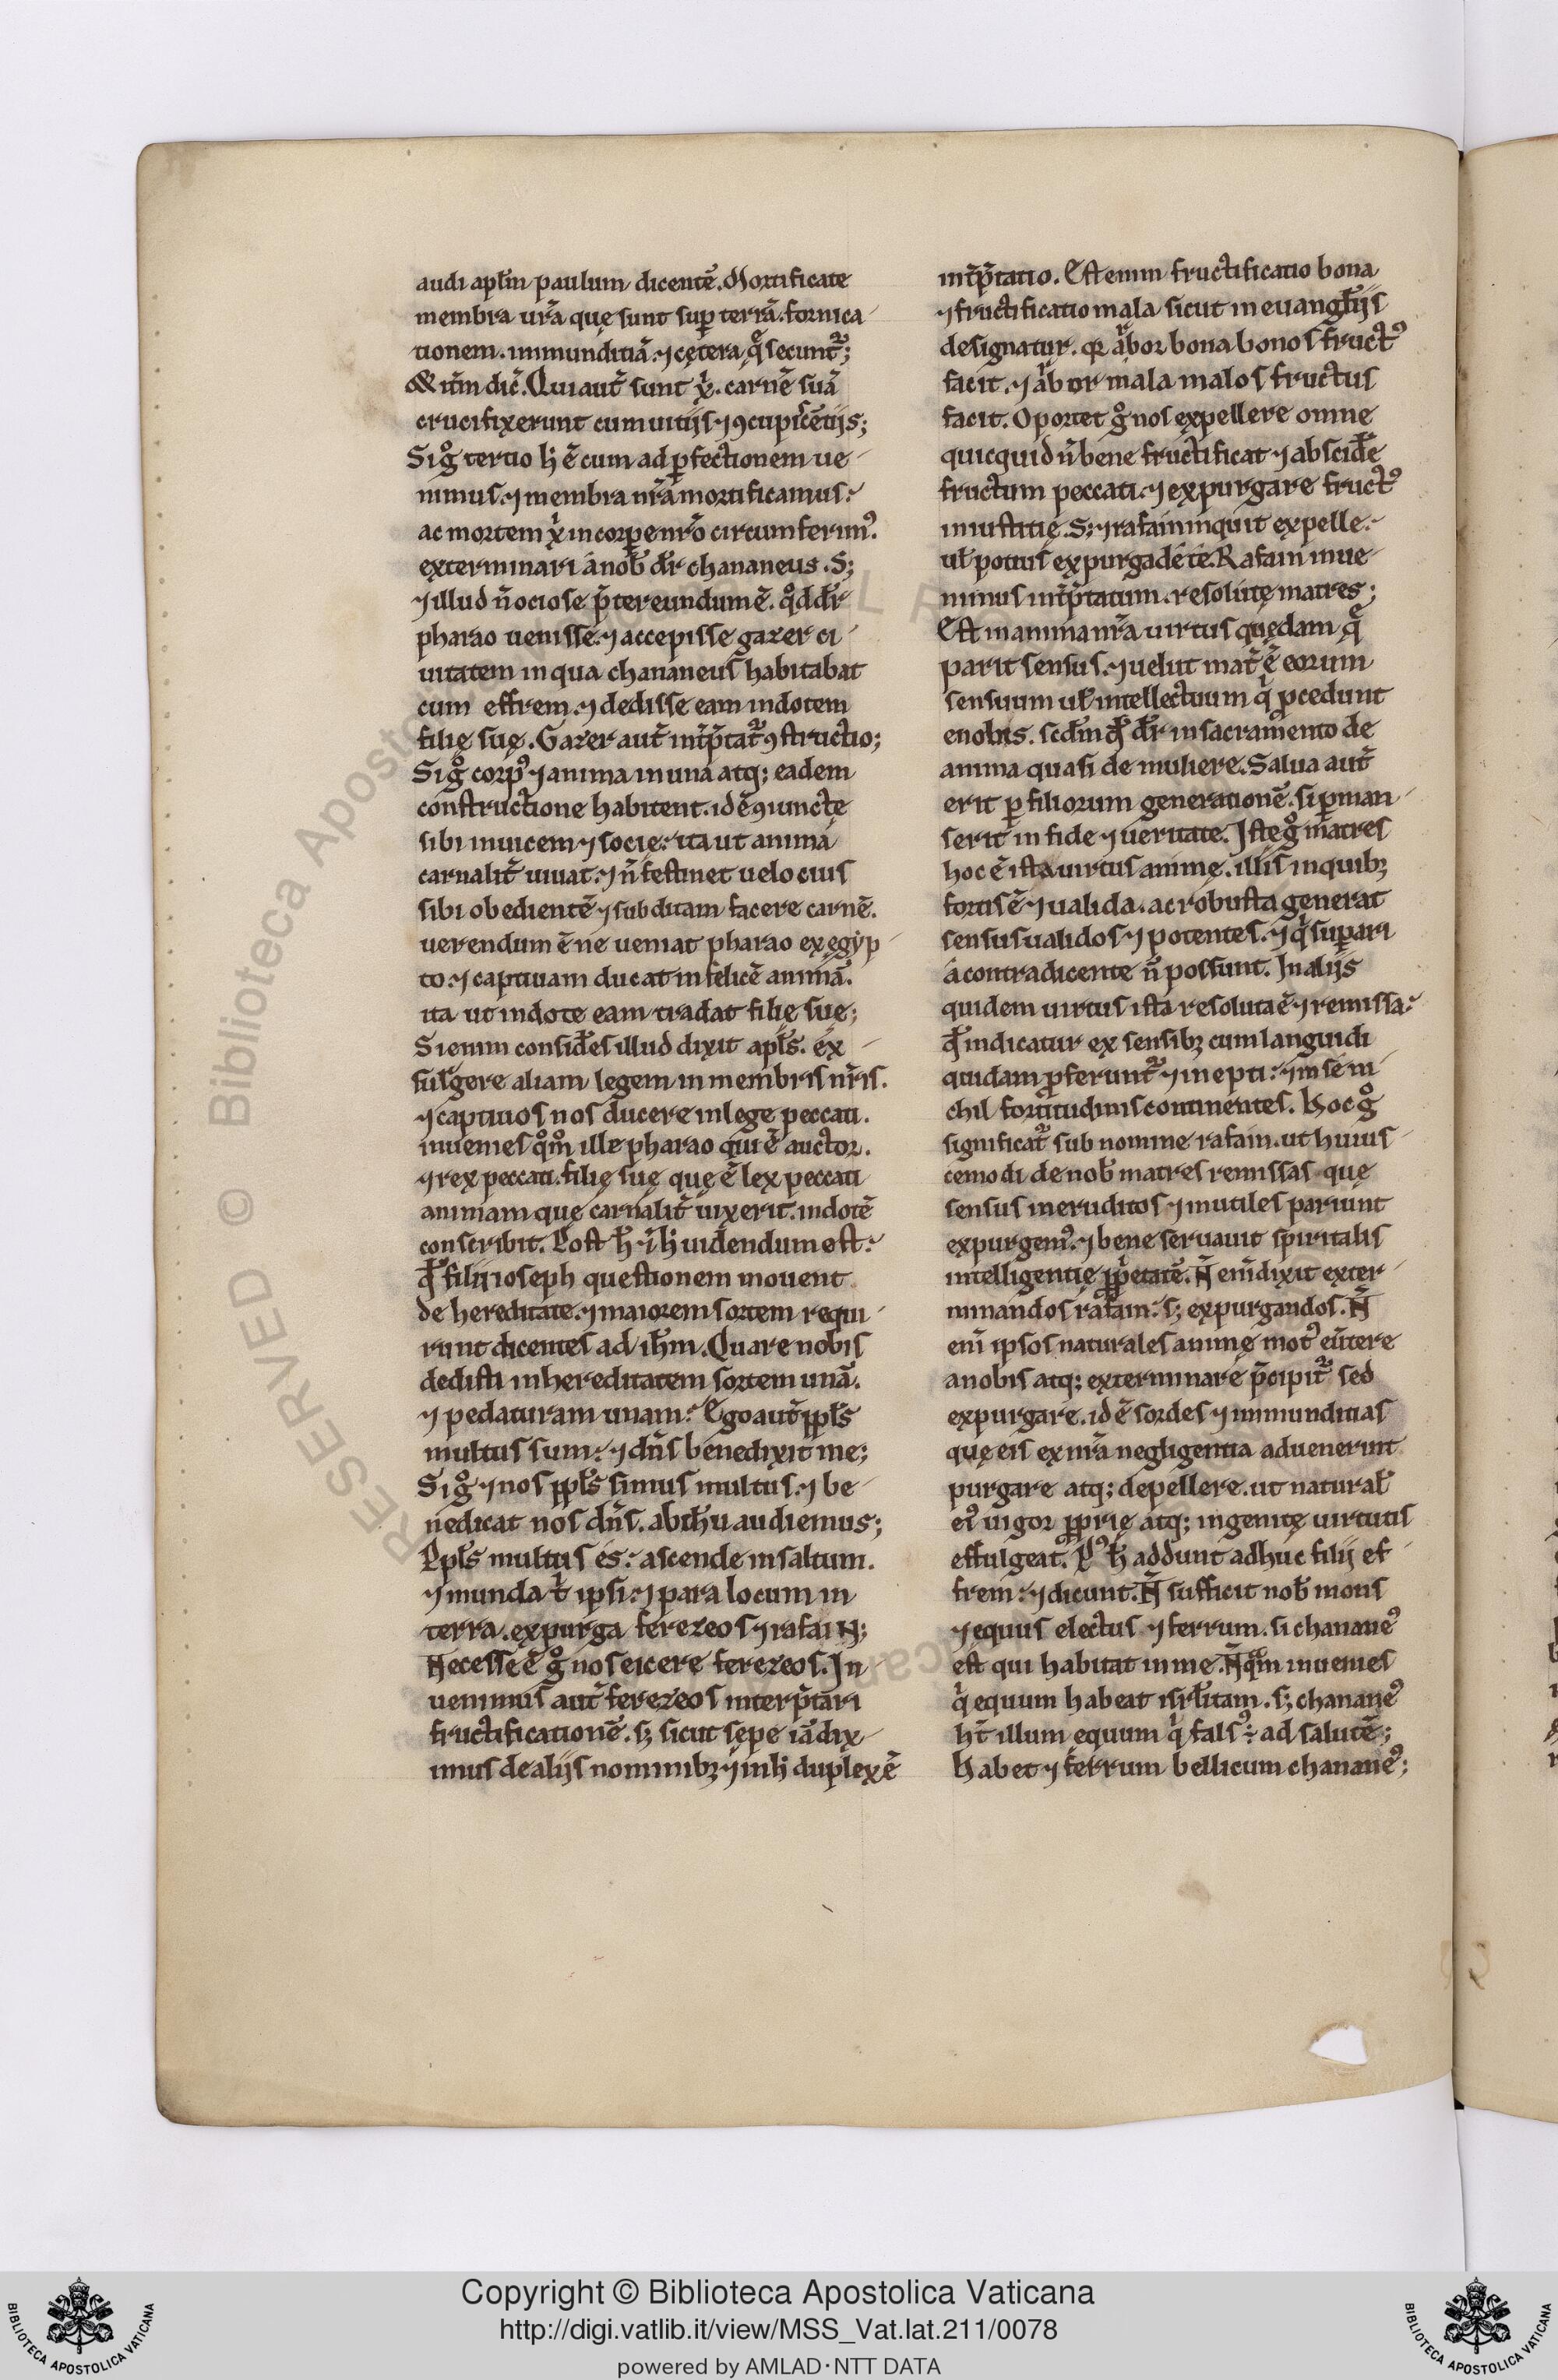 audi apl̅m paulum dicentē. Mortificate
membra ur̅a quę sunt suꝑ terrā. fornica-
tionem. immunditiā. ⁊ cętera q̅ secunt᷑;
& it̅m dic̅. Qui aut̅ sunt x̅i. carnē suā
crucifixerunt cum uitijs ⁊ ꝯcupisc̅tijs;
Sig̊ tertio h̅ ē cum ad ꝑfectionem ue-
nimus. ⁊ membra nr̅a mortificamus.
ac mortem x̅i in corpe nr̅o circumferimꝰ.
exterminari a nob̅ dr̅ chananeus. S;
⁊ illud n̅ ociose p̅tereundum ē. qd̅ dr̅
pharao uenisse. ⁊ accepisse gazer ci-
uitatem in qua chananeus habitabat
cum effrem. ⁊ dedisse eam in dotem
filię suę. Gazer aut̅ int̅p̅tat᷑ ꝯstructio;
Sig̊ corpꝰ ⁊ anima in una atq; eadem
constructione habitent. id ē ꝯiuncte
sibi inuicem ⁊ socię. ita ut anima
carnalit̅ uiuat. ⁊ n̅ festinet uelocius
sibi obedientē ⁊ subditam facere carnē.
uerendum ē ne ueniat pharao ex egyp-
to. ⁊ captiuam ducat infelicē animā.
ita ut in dote eam tradat filię suę;
Si enim consid̅es illud dixit apl̅s. ex-
fulgere aliam legem in membris nr̅is.
⁊ captiuos nos ducere in lege peccati.
inuenies qm̅ ille pharao qui ē auctor.
⁊ rex peccati. filię suę quę ē lex peccati
animam quę carnalit̅ uixerit. in dotē
conscribit. Post h̅ ⁊ h̅ uidendum est.
qd̅ filii ioseph questionem mouent
de hereditate. ⁊ maiorem sortem requi-
runt dicentes ad ih̅m. Quare nobis
dedisti in hereditatem sortem unā.
⁊ pedaturam unam. Ego aut̅ ppl̅s
multus sum. ⁊ dn̅s benedixit me;
Sig̊ ⁊ nos ppl̅s simus multus. ⁊ be-
nedicat nos dn̅s. ab ih̅u audiemus;
Ppl̅s multus es. ascende in saltum.
⁊ munda t̅ ipsi. ⁊ para locum in
terra. expurga ferezeos ⁊ rafain;
Necesse ē g̊ nos eicere ferezeos. In-
uenimus aut̅ ferezeos interp̅tari
fructificationē. s; sicut sepe iā dix-
imus de aliis nominibꝫ ⁊ in h̅ duplex ē
int̅p̅tatio. Est enim fructificatio bona
⁊ fructificatio mala sicut in euangl̅ijs
designatur. qr̅ arbor bona bonos fructꝰ
facit. ⁊ arbor mala malos fructus
facit. Oportet g̊ nos expellere omne
quicquid n̅ bene fructificat ⁊ abscid̅e
fructum peccati. ⁊ expurgare fructꝰ
iniustitię. S; ⁊ rafain inquit expelle.
ul̅ potius expurga de te. Rafain inue-
nimus int̅p̅tatum. resolutę matres;
Est in anima nr̅a uirtus quędam q̅
parit sensus. ⁊ uelut mat̅ ē eorum
sensuum ul̅ intellectuum qⁱ ꝓcedunt
e nobis. scd̅m qd̅ dr̅ in sacramento de
anima quasi de muliere. Salua aut̅
erit ꝑ filiorum generationē. si ꝑman-
serit in fide ⁊ ueritate. Iste g̊ matres
hoc ē ista uirtus animę. illis in quibꝫ
fortis ē ⁊ ualida. ac robusta generat
sensus ualidos ⁊ potentes. ⁊ qⁱ suꝑari
a contradicente n̅ possunt. In aliis
quidem uirtus ista resoluta ē ⁊ remissa.
qd̅ indicatur ex sensibꝫ cum languidi
quidam ꝓferunt᷑ ⁊ inepti. ⁊ in se ni-
chil fortitudinis continentes. Hoc g̊
significat᷑ sub nomine rafain. ut huius-
cemodi de nob̅ matres remissas que
sensus ineruditos ⁊ inutiles pariunt
expurgemꝰ. ⁊ bene seruauit spiritalis
intelligentię ꝓprietatē. N̅ eni̅ dixit exter-
minandos rafain. s; expurgandos. N̅
eni̅ ipsos naturales animę motꝰ eu̅tere
a nobis atq; exterminare p̅cipit᷑ sed
expurgare. id ē sordes ⁊ immunditias
quę eis ex nr̅a negligentia aduenerunt
purgare atq; depellere. ut natural̅
eiꝰ uigor ꝓprię atq; ingenitę uirtutis
effulgeat. Pꝰ h̅ addunt adhuc filij ef-
frem. ⁊ dicunt. N̅ sufficit nob̅ mons
⁊ equus electus ⁊ ferrum. si chananeꝰ
est qui habitat in me. N̅qm̅ inuenies
qⁱ equum habeat isrl̅itam. s; chananeꝰ
ht̅ illum equum qⁱ falsꝰ ÷ ad salutē;
Habet ⁊ ferrum bellicum chananeꝰ;
RESERVED © Biblioteca Apostolica
Copyright © Biblioteca Apostolica Vaticana
http://digi.vatlib.it/view/MSS_Vat.lat.211/0078
powered by AMLAD·NTT DATA
BIBLIOTECA APOSTOLICA VATICANA
BIBLIOTECA APOSTOLICA VATICANA